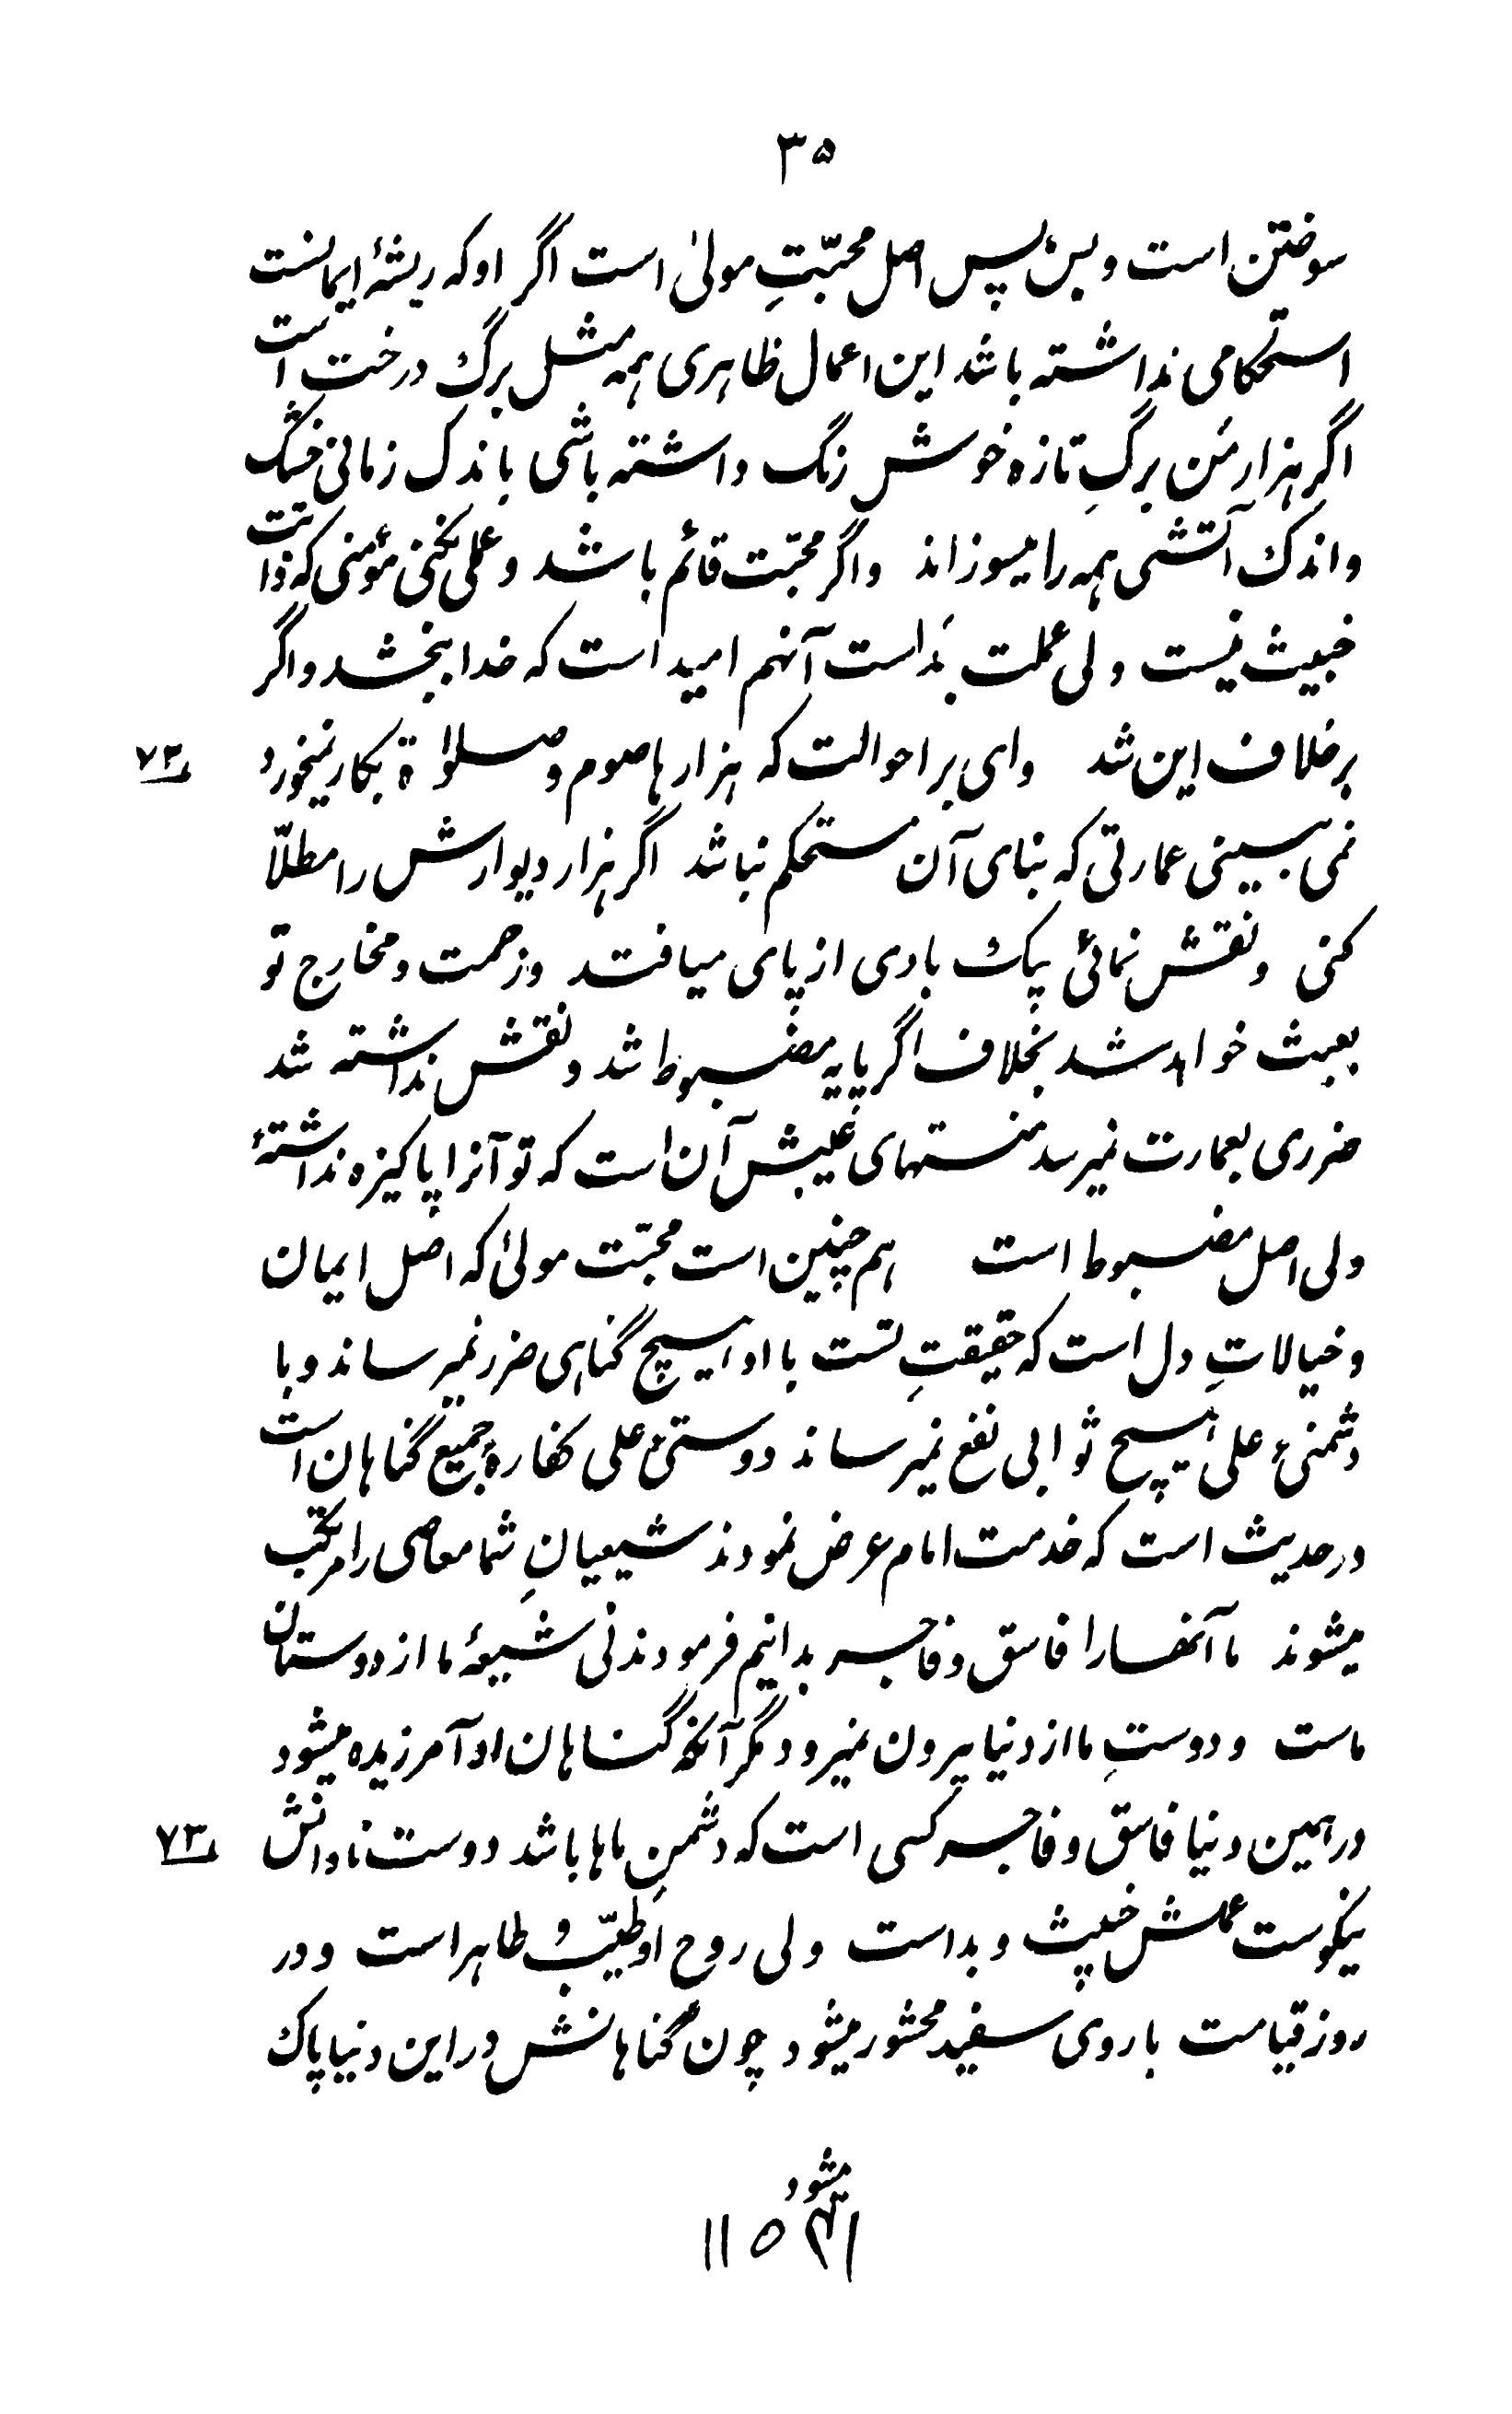 ۳۵
سوختن است و بس پس اصل محبّتِ مولیٰ است اگر او که ریشهٔ ایمانست
استحکامی نداشته باشد این اعمال ظاهری همه مثل برگ درخت است
اگر هزار مَن برگِ تازه خوش رنگ داشته باشی باندک زمانی خشک
و اندک آتشی همه را میسوزاند و اگر محبّت قائم باشد و عملی نکنی مؤمنی که ذاتت
خبیث نیست ولی عملت بَد است آنهم امید است که خدا ببخشد و اگر
برخلاف این شد وای بر احوالت که هزارها صوم و صلوٰاة بکار نمیخورد
۷۳
نمی بینی عمارتی که بنای آن مستحکم نباشد اگر هزار دیوارش را مطلّا
کنی و نقش نمائی بیک بادی از پای میافتد و زحمت و مخارج تو
بعبث خواهد شد بخلاف اگر پایه مضبوط شد و نقش نداشته شد
ضرری بعمارت نمیرسد منتهای عیبش آن است که تو آنرا پاکیزه نداشتهٔ
ولی اصل مضبوط است هم چنین است محبّت مولیٰ که اصل ایمان
و خیالاتِ دل است که حقیقتِ تست با او هیچ گناهی ضرر نمیرساند و با
دشمنیٔ علی هیچ ثوابی نفع نمیرساند دوستیٔ علی کفارهٔ جمیع گناهان است
در حدیث است که خدمت امام عرض نمودند شیعیانِ شما معاصی را مرتکب
میشوند ما آنها را فاسق و فاجر بدانیم فرمودند نی شیعهٔ ما از دوستان
ماست و دوستِ ما از دنیا بیرون نمیرود مگر آنکه گناهان او آمرزیده میشود
در همین دنیا فاسق و فاجر کسی است که دشمنِ ماها باشد دوست ما ذاتش
۷۳
نیکوست عملش خبیث و بد است ولی روح او طیّب و طاهر است و در
روز قیامت با روی سفید محشور میشود چون گناهانش در این دنیا پاک
میشود